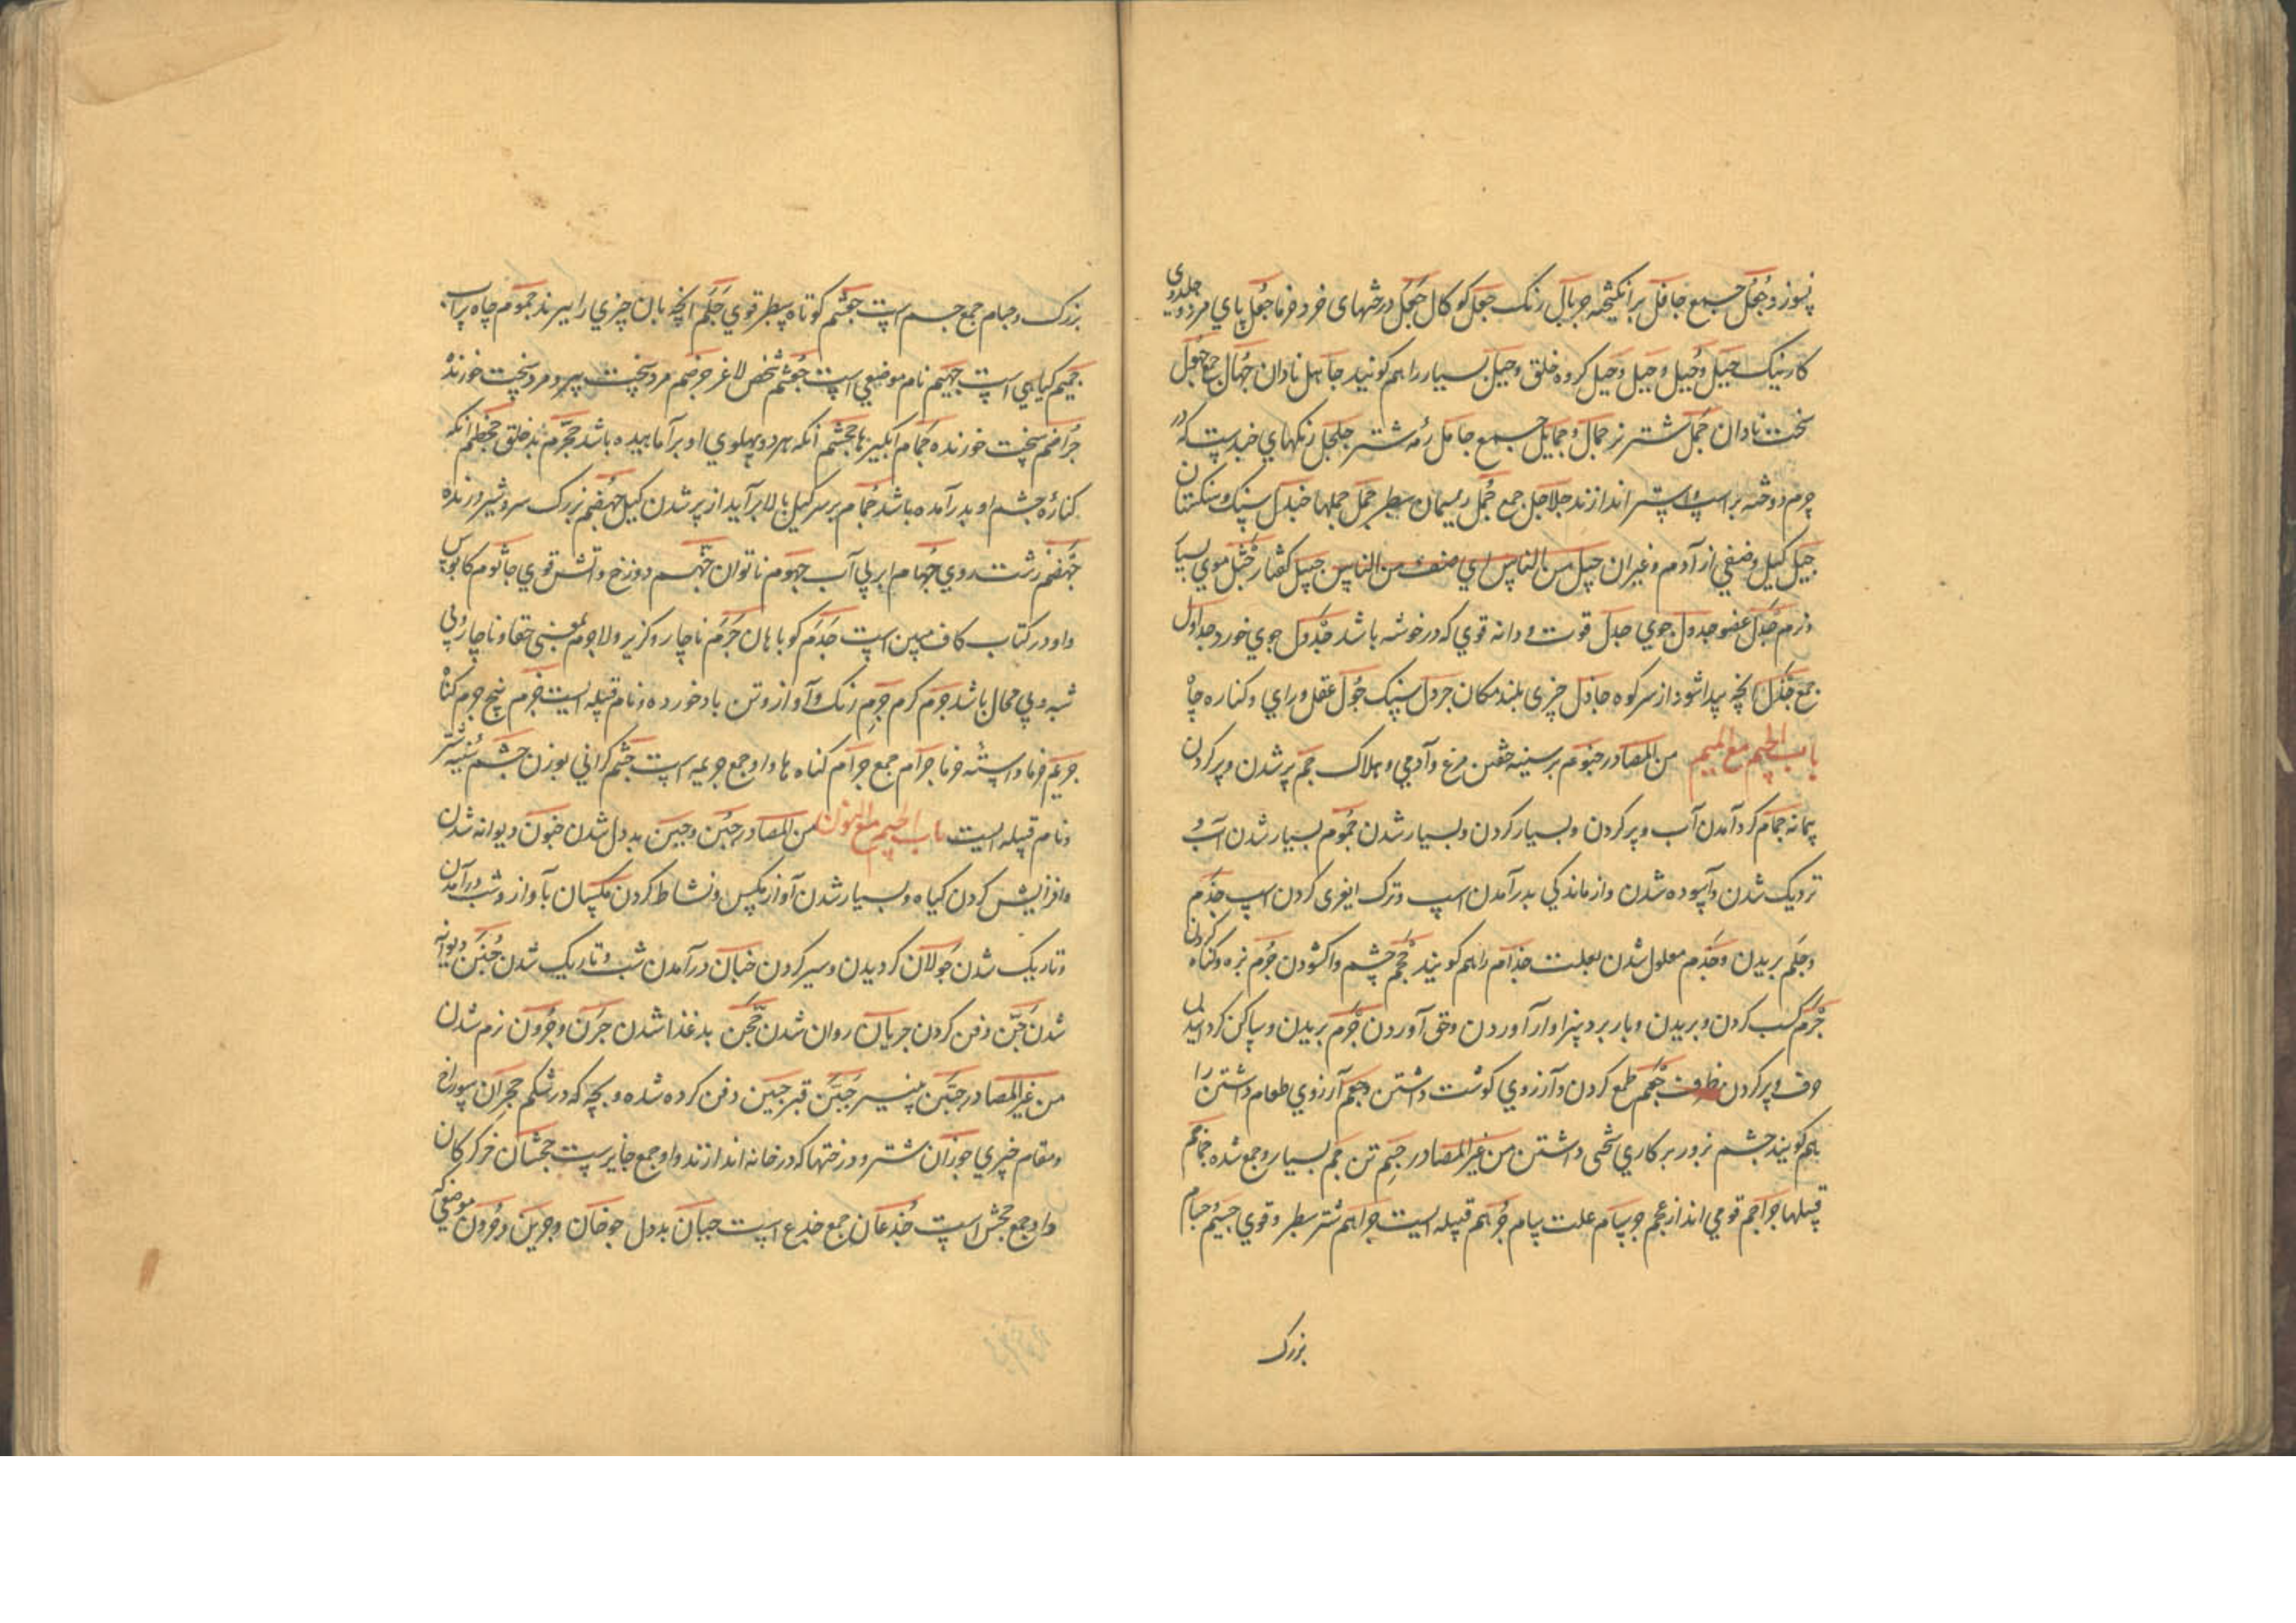 جمع جافل برانکیخته جریال رنک جعل کوکال جعل درختهای خرد خرما جعل پای مرد
کار نیک جیل و جبیل و جبل کروه خلق و جبل بسیار را هم کویند جاهل نادان جهال جمع جهول
سخت نادان جمل شتر نر جمال و جمایل جمع جامل رمه شتر جلجل زنکهای
چرم دوخته بر اسپ و استر اندازند جلاجل جمع جمل ریسمان سطبر جمل جملها جندل سنک و سنکستان
جیل کیل و صنفی از آدم و غیر ان جیل من الناس ای صنف من الناس جیل کفتار جثل موی بسیار
و نرم جدل عضو جدول جوی جدل قوت و دانه قوی که در خوشه باشد جدول جوی خورد جداول
جمع جذل انچه پیدا شود از سر کوه جاذل چیزی بلند مکان جردل سنک جول عقل و رای و کناره چاه
باب الجیم مع المیم من المصادر جثوم بر سینه خفتن مرغ و آدمی و هلاک جم پر شدن و پر کردن
پیمانه جمام کرد آمدن آب و پر کردن و بسیار کردن و بسیار شدن جموم بسیار شدن آب و
نزدیک شدن و آسوده شدن و از ماندکی بدر آمدن اسپ و ترک ایغری کردن اسپ جذم
و جلم بریدن و جذم معلول شدن بعلت جذام را هم کویند جحم چشم واکشودن جرم بزه و کناه کردن
جرم کسب کردن و بریدن و بار برد سزاوار آوردن و حق آوردن جزم بریدن و ساکن کردانیدن
حرف و پر کردن ظرف جعم طمع کردن و آرزوی کوشت داشتن جعم آرزوی طعام داشتن را
هم کویند جشم بزور بر کاری سختی داشتن من غیر المصادر جسم تن جم بسیار و جمع شده جماجم
قبیلها جراجم قومی اند از عجم جرسام علت سام جرهم قبیله ایست جراهم شتر سطبر و قوی جسیم جسام
بزرک
بزرک و جسام جمع جسم است جعشم کوتاه سطبر قوی جلم انچه بان چیزی را ببرند جموم چاه پر آب
جمیم کیاهی است جهیم نام موضعی است جعثم شخص لاغر جرضم مرد سخت پیر و مرد سخت خورنده
جراضم سخت خورنده جمام آبکیرها جحشم آنکه هر دو پهلوی او بر آماسیده باشد جحرم بد خلق جحظم آنکه
کناره چشم او بدر آمده باشد جمام بر سر کیل بالا برآید از پر شدن کیل جهضم بزرک سر و شیر درنده
جهضم زشت روی جهام ابر بی آب جهوم ناتوان جهنم دوزخ و آتش قوی جاثوم کابوس
و او در کتاب کاف مبین است جذم کوباهان جرم ناچار و کزیر ولا جرم بمعنی حقا و ناچار و بی
شبه و بی محال باشد جرم کرم جرم رنک و آواز و تن باد خورده و نام قبیله ایست جرم بیخ جرم کناه
جریم خرما و استه خرما جرام جمع جرام کناه ها و او جمع جریمه است جشم کرانی بوزن جشم سینه شتر
و نام قبیله ایست باب الجیم مع النون من المصادر جبن و جبن بددل شدن جنون دیوانه شدن
و افزایش کردن کیاه و بسیار شدن آواز مکس و نشاط کردن مکسان بآواز و شب درآمدن
و تاریک شدن جولان کردیدن و سیر کردن جنان درآمدن شب و تاریک شدن جنن دیوانه
شدن جنن دفن کردن جریان روان شدن جحن بد غذا شدن جرن و جرون نرم شدن
من غیر المصادر جبن پنیر جنن قبر جنین دفن کرده شده و بچه که در شکم جحران سوراخ
و مقام چیزی جوزان شتر و درختها که در خانه اندازند و او جمع جایز است جحشان خر کرکان
و او جمع جحش است جذعان جمع جذع است جبان بددل جوخان و جرین و جرون موضعی که